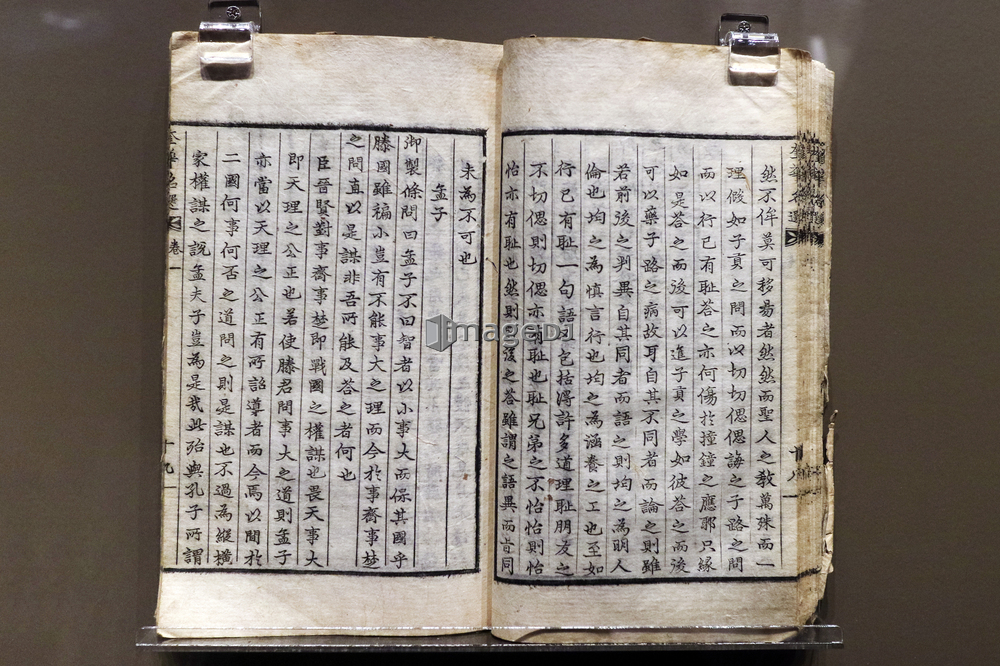 然不侔莫可移易者然然而聖人之教萬殊而一
理假如子貢之問而以切切偲偲誨之子路之問
而以行已有耻荅之亦何傷於撞鐘之應耶只緣
如是荅之而後可以進子貢之學如彼荅之而後
可以藥子路之病故耳自其不同者而論之則雖
若前後之判異自其同者而語之則均之為明人
倫也均之為慎言行也均之為涵養之工也至如
行已有耻一句語又包括得許多道理耻朋友之
不切偲則切偲亦有耻也耻兄弟之不怡怡則怡
怡亦有耻也然則後之荅雖謂之語異而旨同
未為不可也
孟子
御製條問曰孟子不曰智者以小事大而保其國乎
滕國雖褊小豈有不能事大之理而今於事齊事楚
之問直以是謀非吾所能及荅之者何也
臣晉賢對事齊事楚即戰國之權謀也畏天事大
即天理之公正也若使滕君問事大之道則孟子
亦當以天理之公正有所詔導者而今焉以間於
二國何事何否之道問之則是謀也不過為縱橫
家權謀之說孟夫子豈為是哉此殆與孔子所謂
奎華名選
卷一
十九
十八
imageDJ